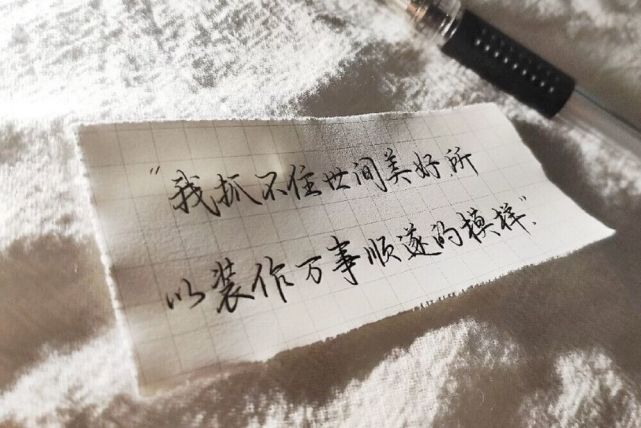 “我抓不住世间美好，所
以装作万事顺遂的模样”.